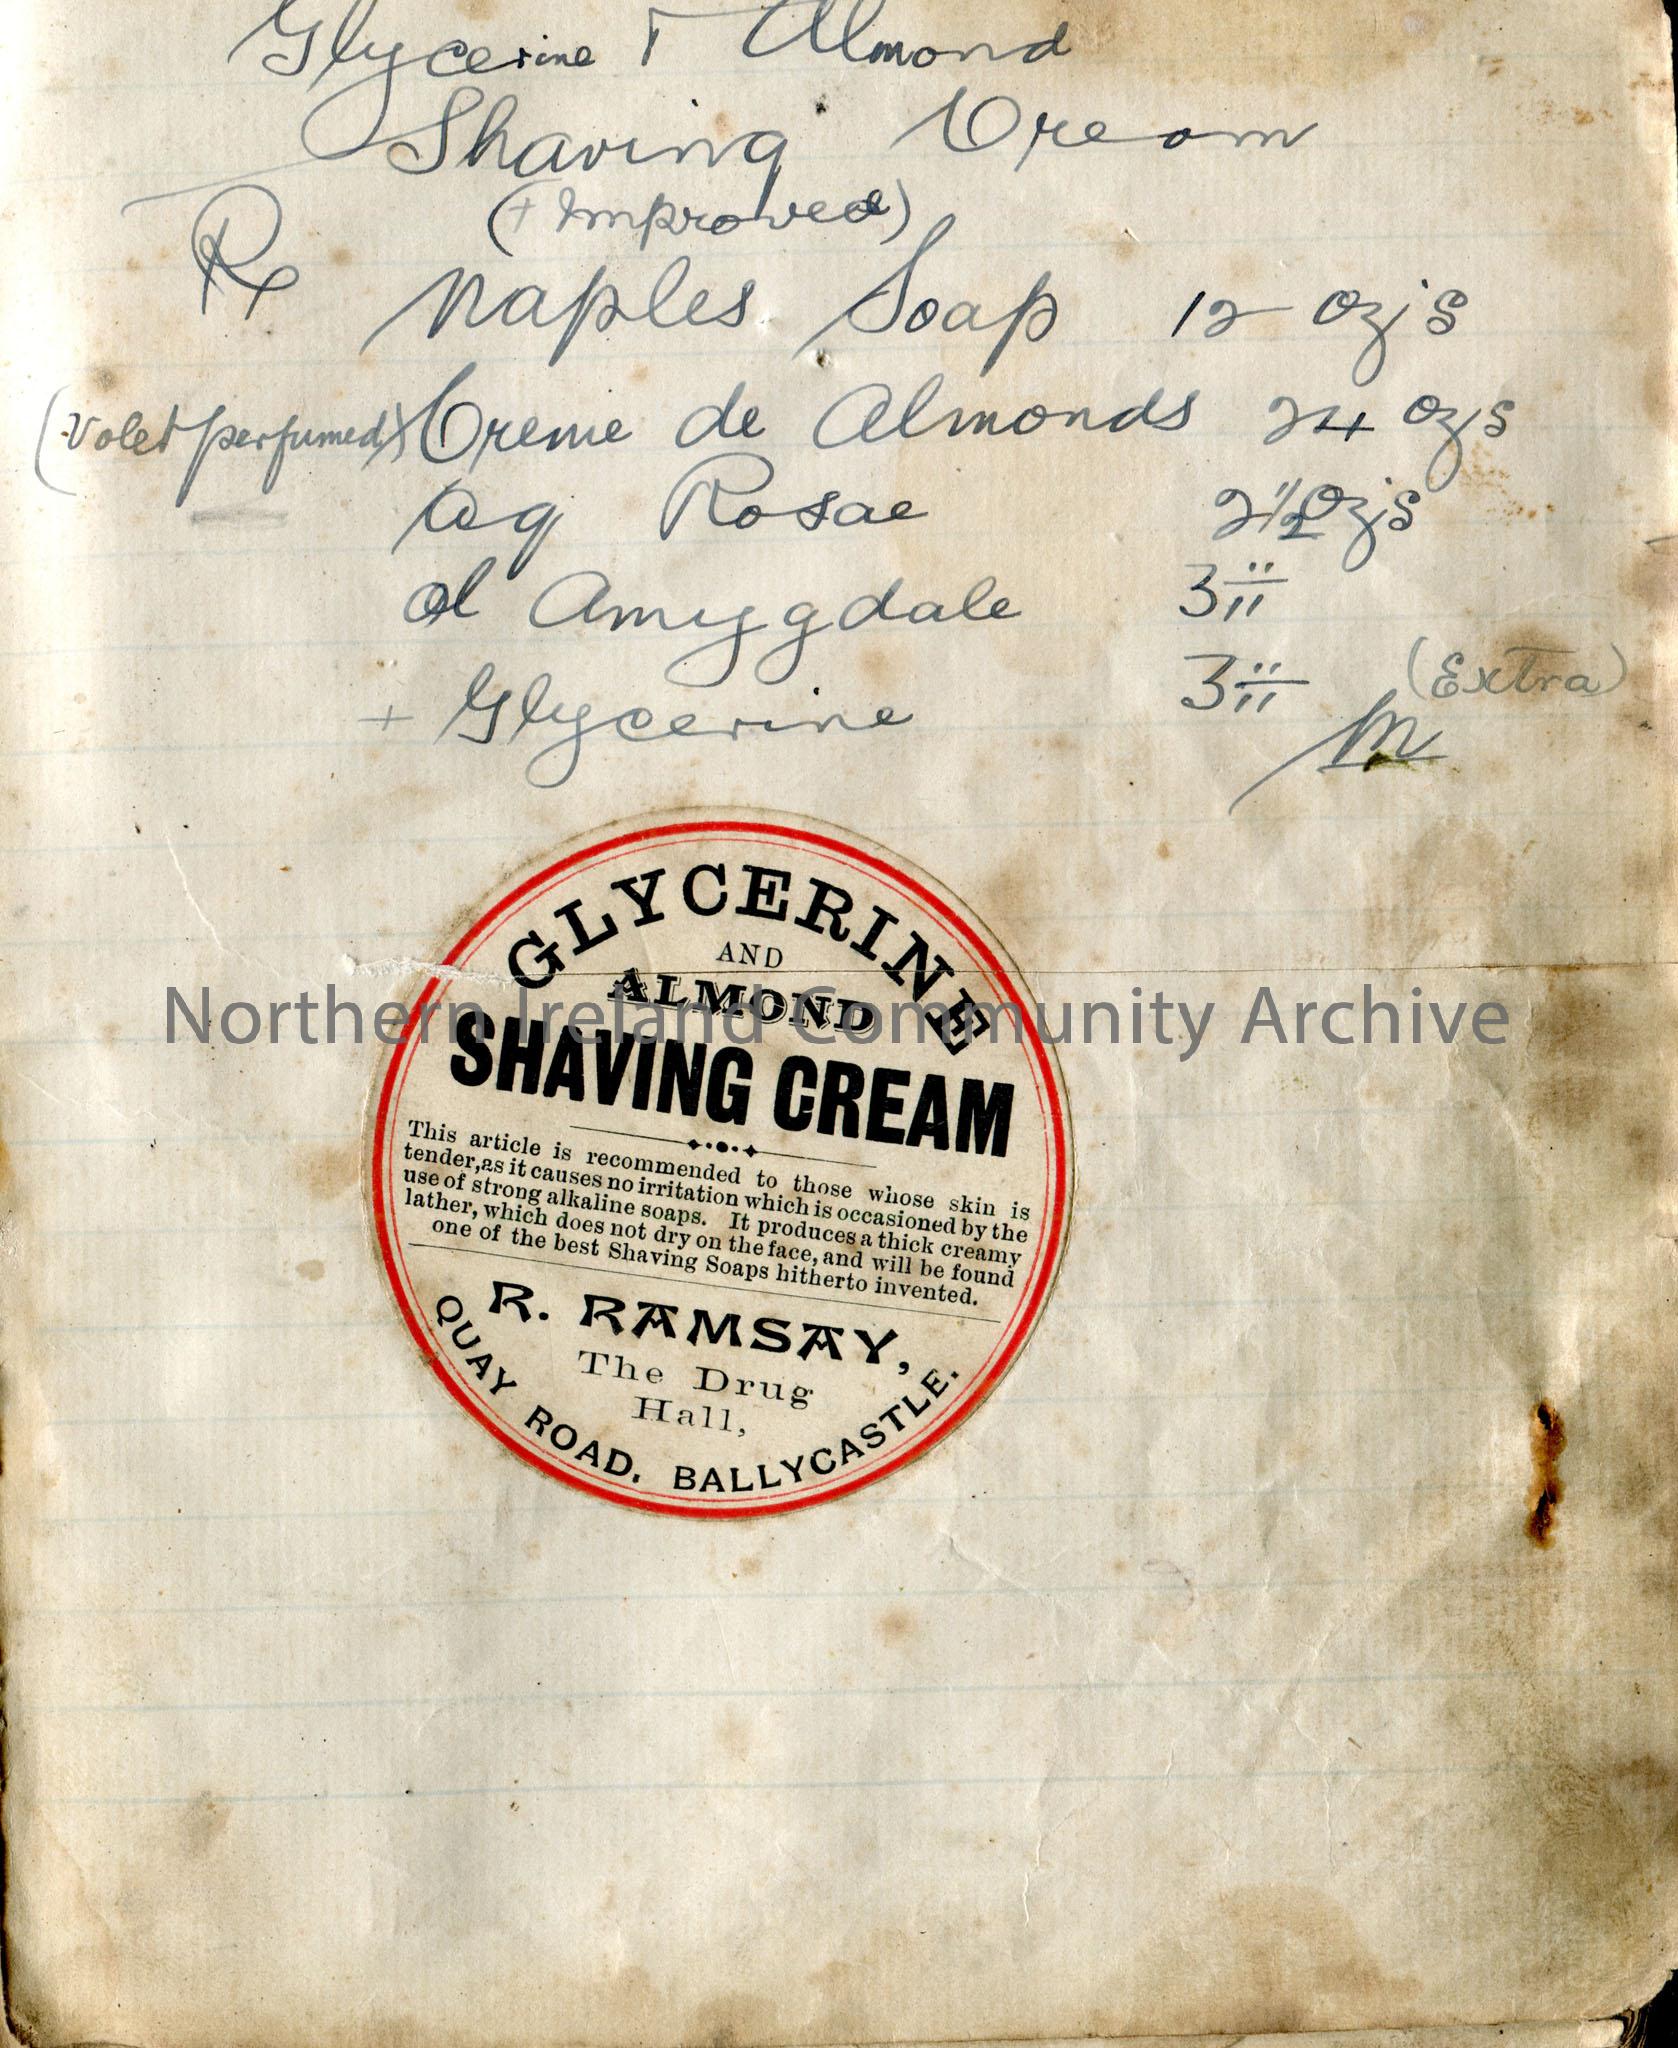 Glycerine & Almond
Shaving Cream
(+ Improved)
Rx Naples Soap 12 ozjs
(Volet perfumed) Creme de Almonds 24 ozjs
Aq Rosae 2½ ozjs
Ol Amygdale ʒii
+ Glycerine ʒii (Extra)
M
GLYCERINE
AND
ALMOND
SHAVING CREAM
This article is recommended to those whose skin is
tender, as it causes no irritation which is occasioned by the
use of strong alkaline soaps. It produces a thick creamy
lather, which does not dry on the face, and will be found
one of the best Shaving Soaps hitherto invented.
R. RAMSAY,
The Drug
Hall,
QUAY ROAD. BALLYCASTLE.
Northern Ireland Community Archive